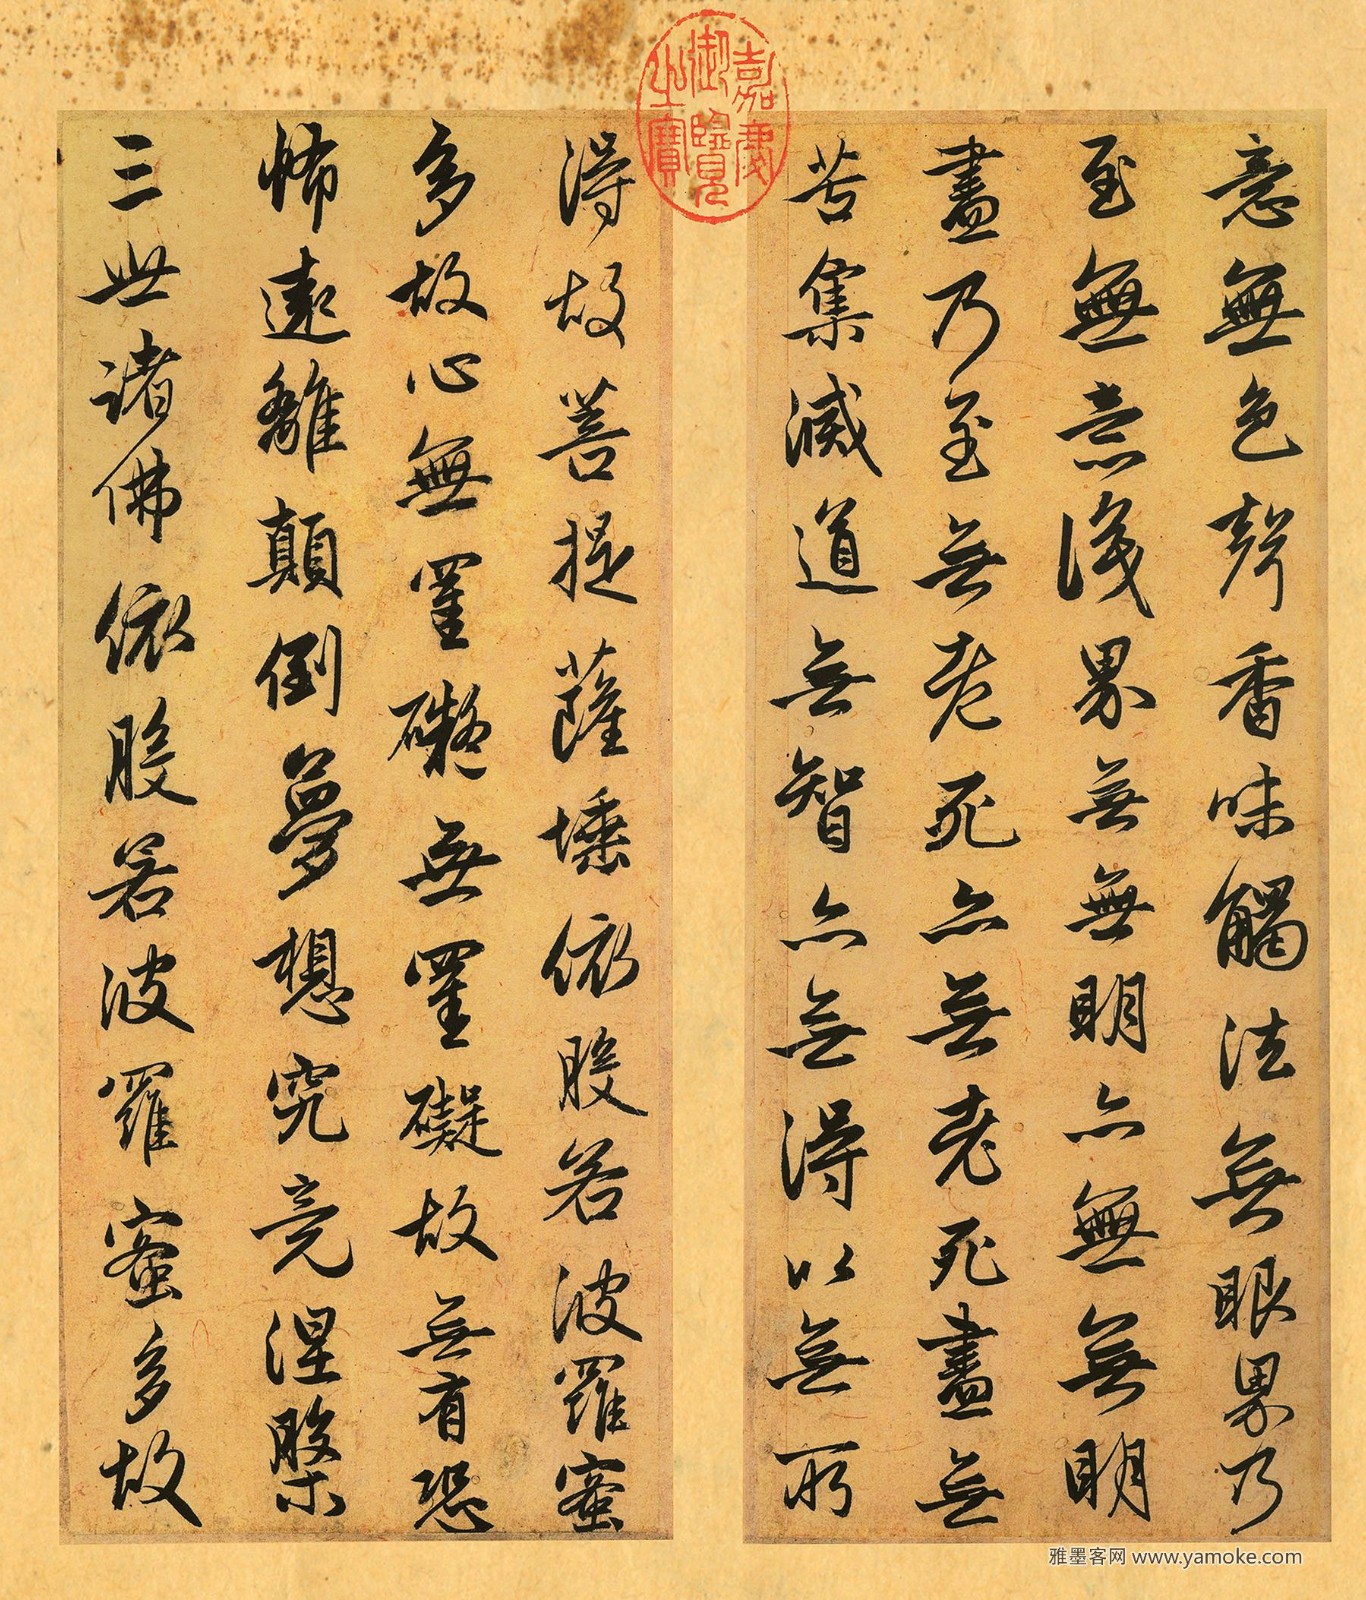 意無色聲香味觸法無眼界乃
至無意識界無無明亦無無明
盡乃至無老死亦無老死盡無
苦集滅道無智亦無得以無所
得故菩提薩埵依般若波羅蜜
多故心無罣礙無罣礙故無有恐
怖遠離顛倒夢想究竟涅槃
三世諸佛依般若波羅蜜多故
嘉慶御覽之寶
雅墨客网 www.yamoke.com